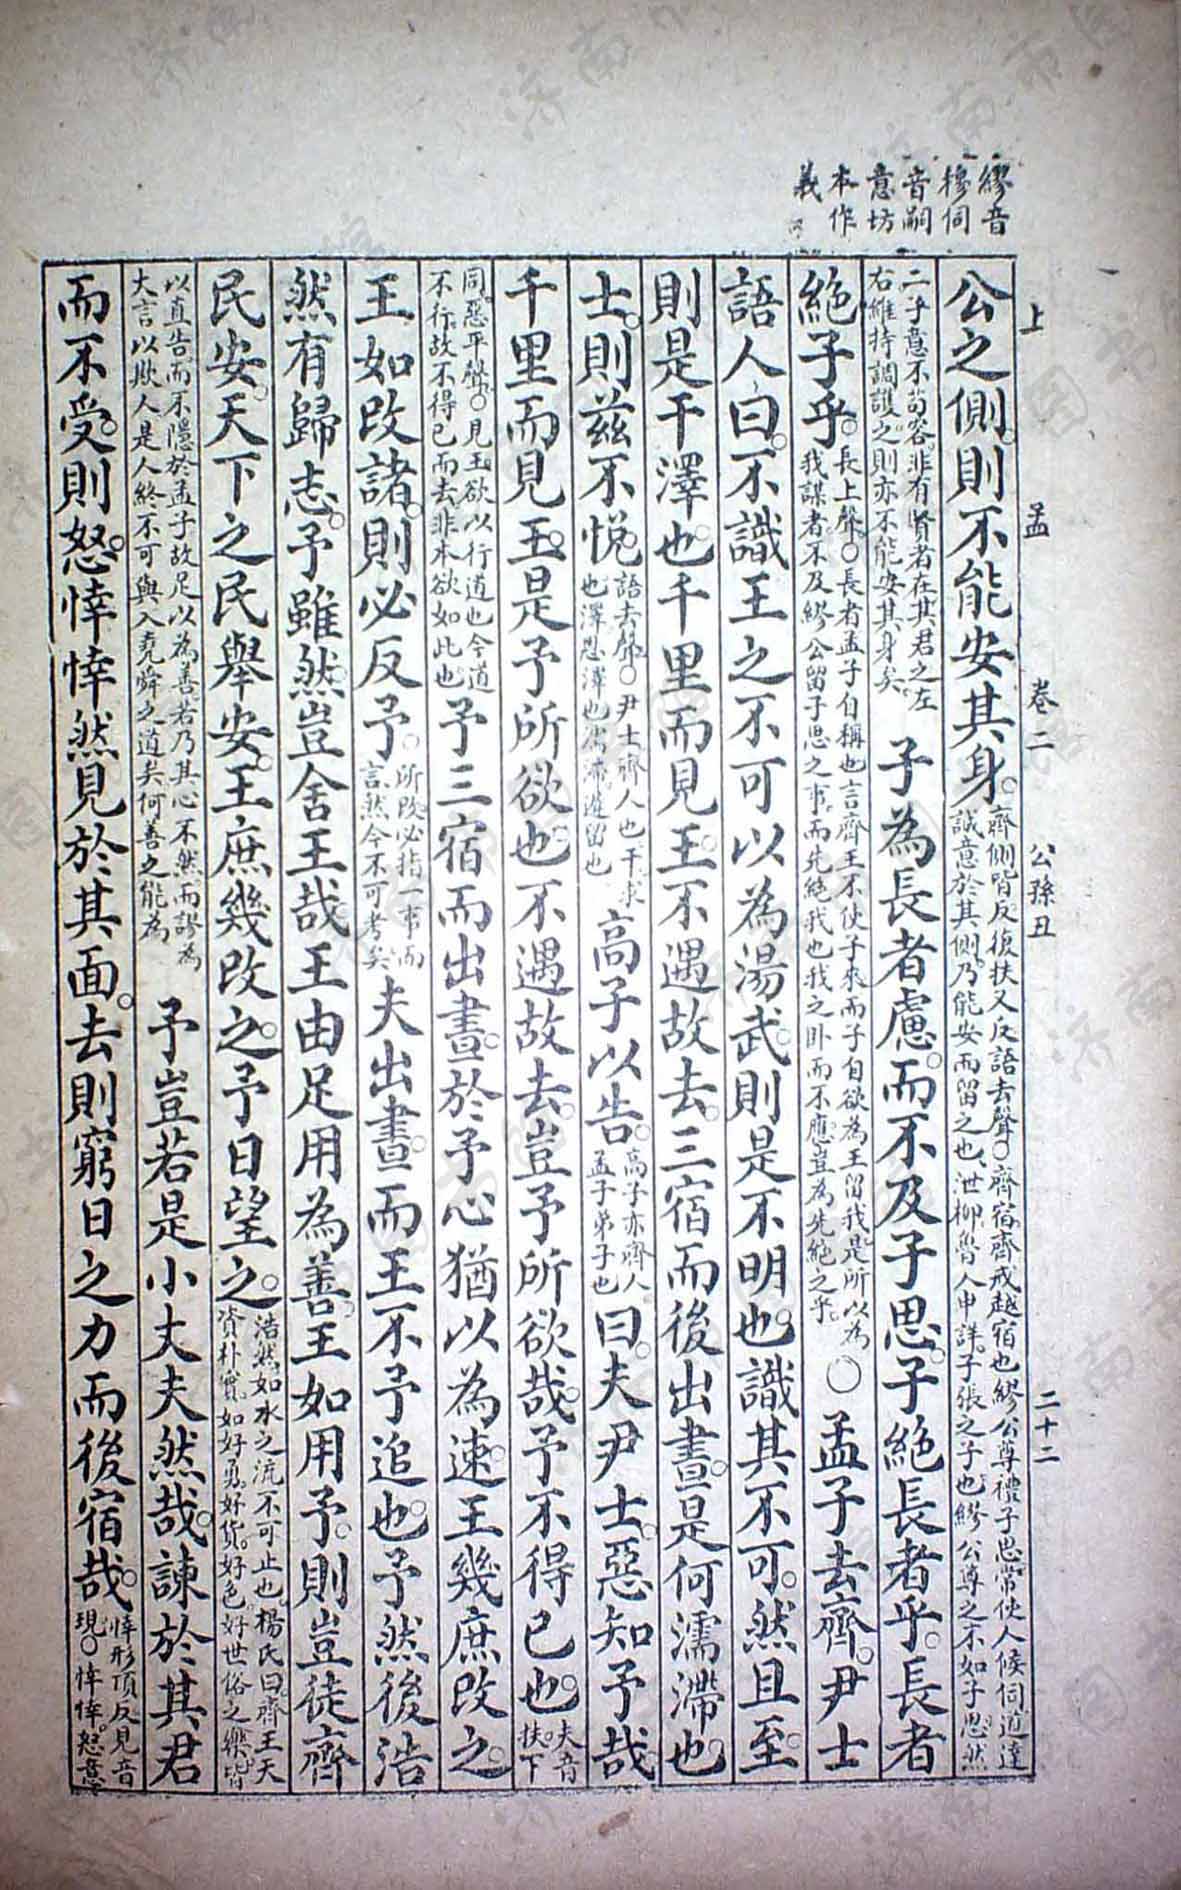 繆音
穆伺
音嗣
意坊
本作
義
上 孟 卷二 公孫丑 二十二
公之側則不能安其身
齊側皆反復扶又反語去聲○齊宿齊戒越宿也繆公尊禮子思常使人候伺道達
誠意於其側乃能安而留之也泄柳魯人申詳子張之子也繆公尊之不如子思然
二子意不苟容非有賢者在其君之左
右維持調護之則亦不能安其身矣
子為長者慮而不及子思子絕長者乎長者
絕子乎
長上聲○長者孟子自稱也言齊王不使子來而子自欲為王留我是所以為
我謀者不及繆公留子思之事而先絕我也我之卧而不應豈為先絕之乎
○孟子去齊尹士
語人曰不識王之不可以為湯武則是不明也識其不可然且至
則是干澤也千里而見王不遇故去三宿而後出晝是何濡滯也
士則茲不悅
語去聲○尹士齊人也干求
也澤恩澤也濡滯遲留也
高子以告
高子亦齊人
孟子弟子也
曰夫尹士惡知予哉
千里而見王是予所欲也不遇故去豈予所欲哉予不得已也
夫音
扶下
同惡平聲○見王欲以行道也今道
不行故不得已而去非本欲如此也
予三宿而出晝於予心猶以為速王幾庶改之
王如改諸則必反予
所改必指一事而
言然今不可考矣
夫出晝而王不予追也予然後浩
然有歸志予雖然豈舍王哉王由足用為善王如用予則豈徒齊
民安天下之民舉安王庶幾改之予日望之
浩然如水之流不可止也楊氏曰齊王天
資朴實如好勇好貨好色好世俗之樂皆
以直告而不隱於孟子故足以為善若乃其心不然而謬為
大言以欺人是人終不可與入堯舜之道矣何善之能為
予豈若是小丈夫然哉諫於其君
而不受則怒悻悻然見於其面去則窮日之力而後宿哉
悻形頂反見音
現○悻悻怒意